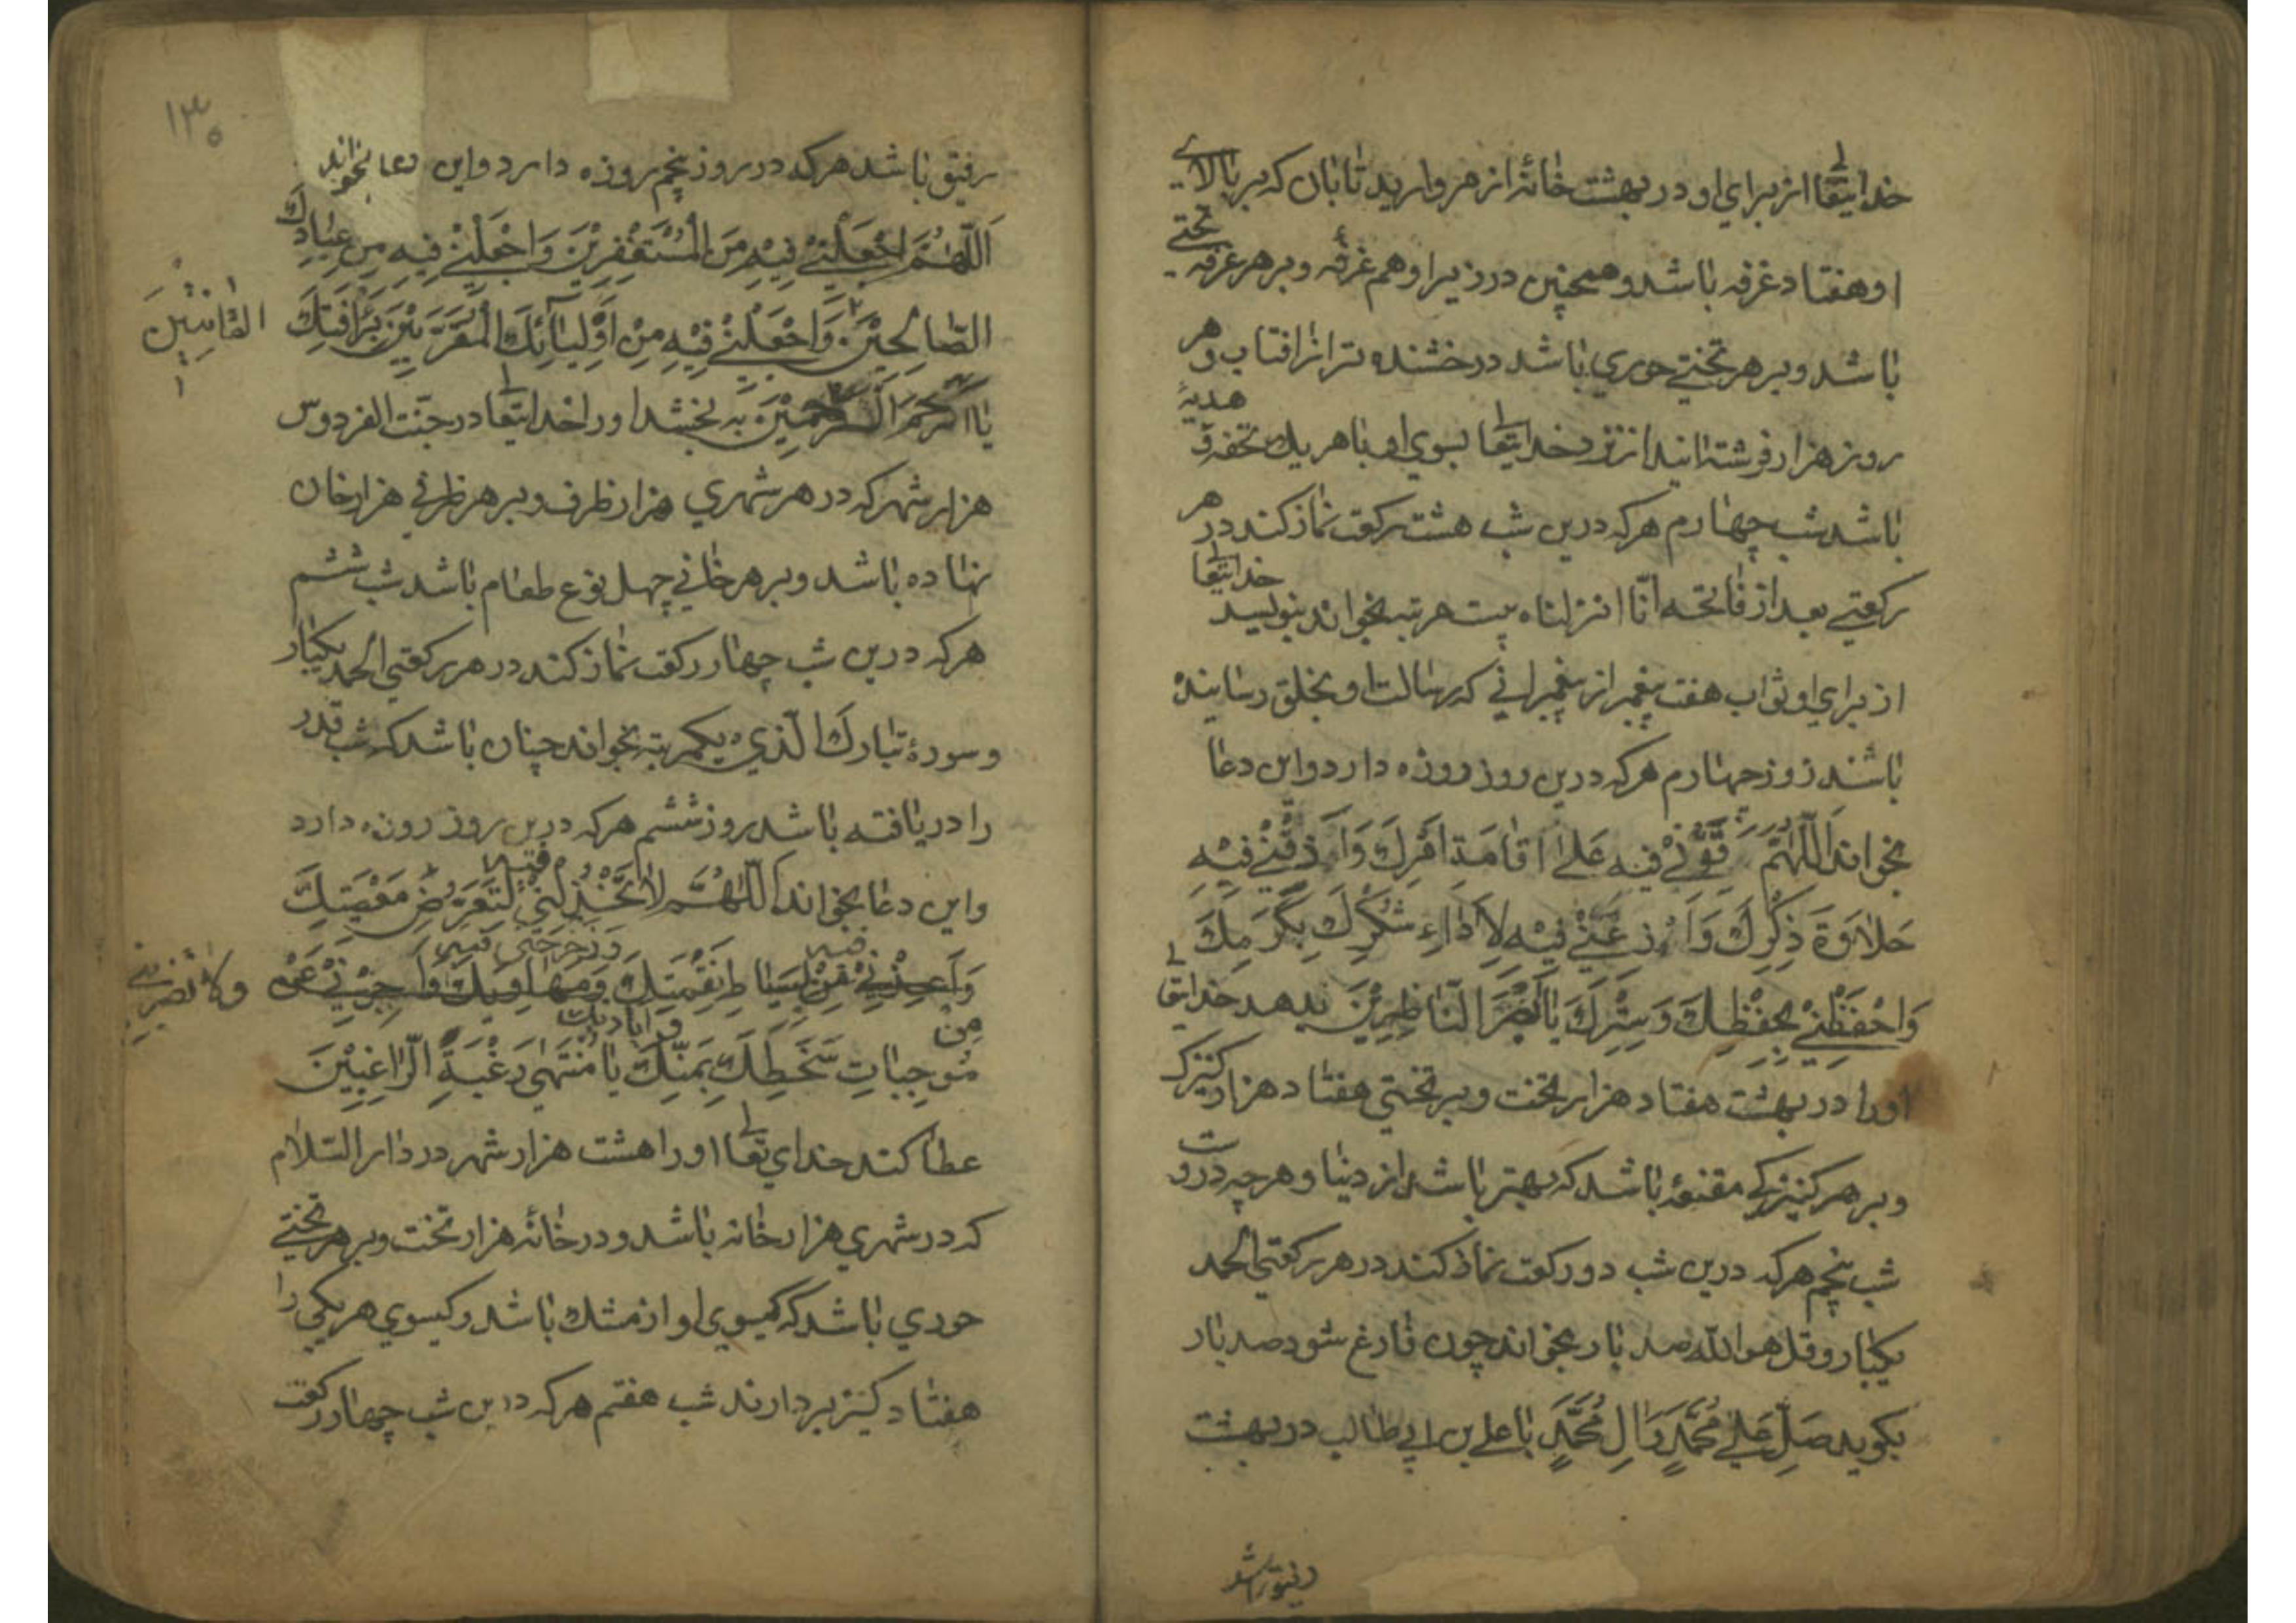 خدایتعا از برای او در بهشت خانهٔ از مروارید تابان که بر بالای
او هفتاد غرفه باشد و همچنین در زیر او هم غرفه و بر هر غرفه تختی
باشد و بر هر تختی حوری باشد درخشنده تر از افتاب و هر
روز هزار فرشته ایند از نزد خدایتعا بسوی او با هر یک تحفه و هدیهٔ
باشد شب چهارم هرکه درین شب هشت رکعت نماز کند در هر
رکعتی بعد از فاتحه انّا انزلناه بیست مرتبه بخواند بنویسد خدایتعا
از برای او ثواب هفت پیغمبر از پیغمبرانی که رسالت او بخلق رسانیده
باشند روز چهارم هرکه درین روز روزه دارد و این دعا
بخواند اَللّٰهُمَّ قَوِّنِي فِيهِ عَلىٰ اِقَامَةِ اَمْرِكَ وَاَذِقْنِي فِيْهِ
حَلاٰوَةَ ذِكْرِكَ وَاَوْزِعْنِي فِيْهِ لِاَدَاءِ شُكْرِكَ بِكَرَمِكَ
وَاحْفَظْنِي بِحِفْظِكَ وَسِتْرِكَ يَا اَبْصَرَ النَّاظِرِيْنَ بدهد خدایتعا
اورا در بهشت هفتاد هزار تخت و بر تختی هفتاد هزار کنیزک
و بر هر کنیزکی مقنعهٔ باشد که بهتر باشد از دنیا و هرچه دروست
شب پنجم هرکه درین شب دو رکعت نماز کند در هر رکعتی الحمد
یکبار و قل هو الله صد بار بخواند چون فارغ شود صد بار
بکوید صَلِّ عَلىٰ مُحَمَّدٍ وَاٰلِ مُحَمَّدٍ با علی بن ابی طالب در بهشت
رفیق باشد
١٣٥
رفیق باشد هرکه در روز پنجم روزه دارد و این دعا بخواند
اَللّٰهُمَّ اجْعَلْنِي فِيْهِ مِنَ الْمُسْتَغْفِرِيْنَ وَاجْعَلْنِي فِيهِ مِنْ عِبَادِكَ
الصَّالِحِيْنَ الْقَانِتِيْنَ وَاجْعَلْنِي فِيْهِ مِنْ اَوْلِيَائِكَ الْمُقَرَّبِيْنَ بِرَأْفَتِكَ
يَا اَرْحَمَ الرَّاحِمِيْنَ به بخشد اورا خدایتعا در جنّت الفردوس
هزار شهر که در هر شهری هزار ظرف و بر هر ظرفی هزار خان
نهاده باشد و بر هر خانی چهل نوع طعام باشد شب ششم
هرکه درین شب چهار رکعت نماز کند در هر رکعتی الحمد یکبار
و سورهٔ تبارك الّذي یکمرتبه بخواند چنان باشد که شب قدر
را دریافته باشد روز ششم هرکه درین روز روزه دارد
و این دعا بخواند اَللّٰهُمَّ لاٰ تَخْذُلْنِي فیه لِتَعَرُّضِ مَعْصِيَتِكَ
ولا تضربنی
فیه
وزحزحنی فیه
من
مُوجِبَاتِ سَخَطِكَ بِمَنِّكَ و ایادیک يَا مُنْتَهىٰ رَغْبَةِ الرَّاغِبِيْنَ
عطا کند خدای تعا اورا هشت هزار شهر در دار السّلام
که در شهری هزار خانه باشد و در خانهٔ هزار تخت و بر هر تختی
حوری باشد که کیسوی او از مشك باشد و کیسوی هر یکی را
هفتاد کنیز بر دارند شب هفتم هرکه درین شب چهار رکعت